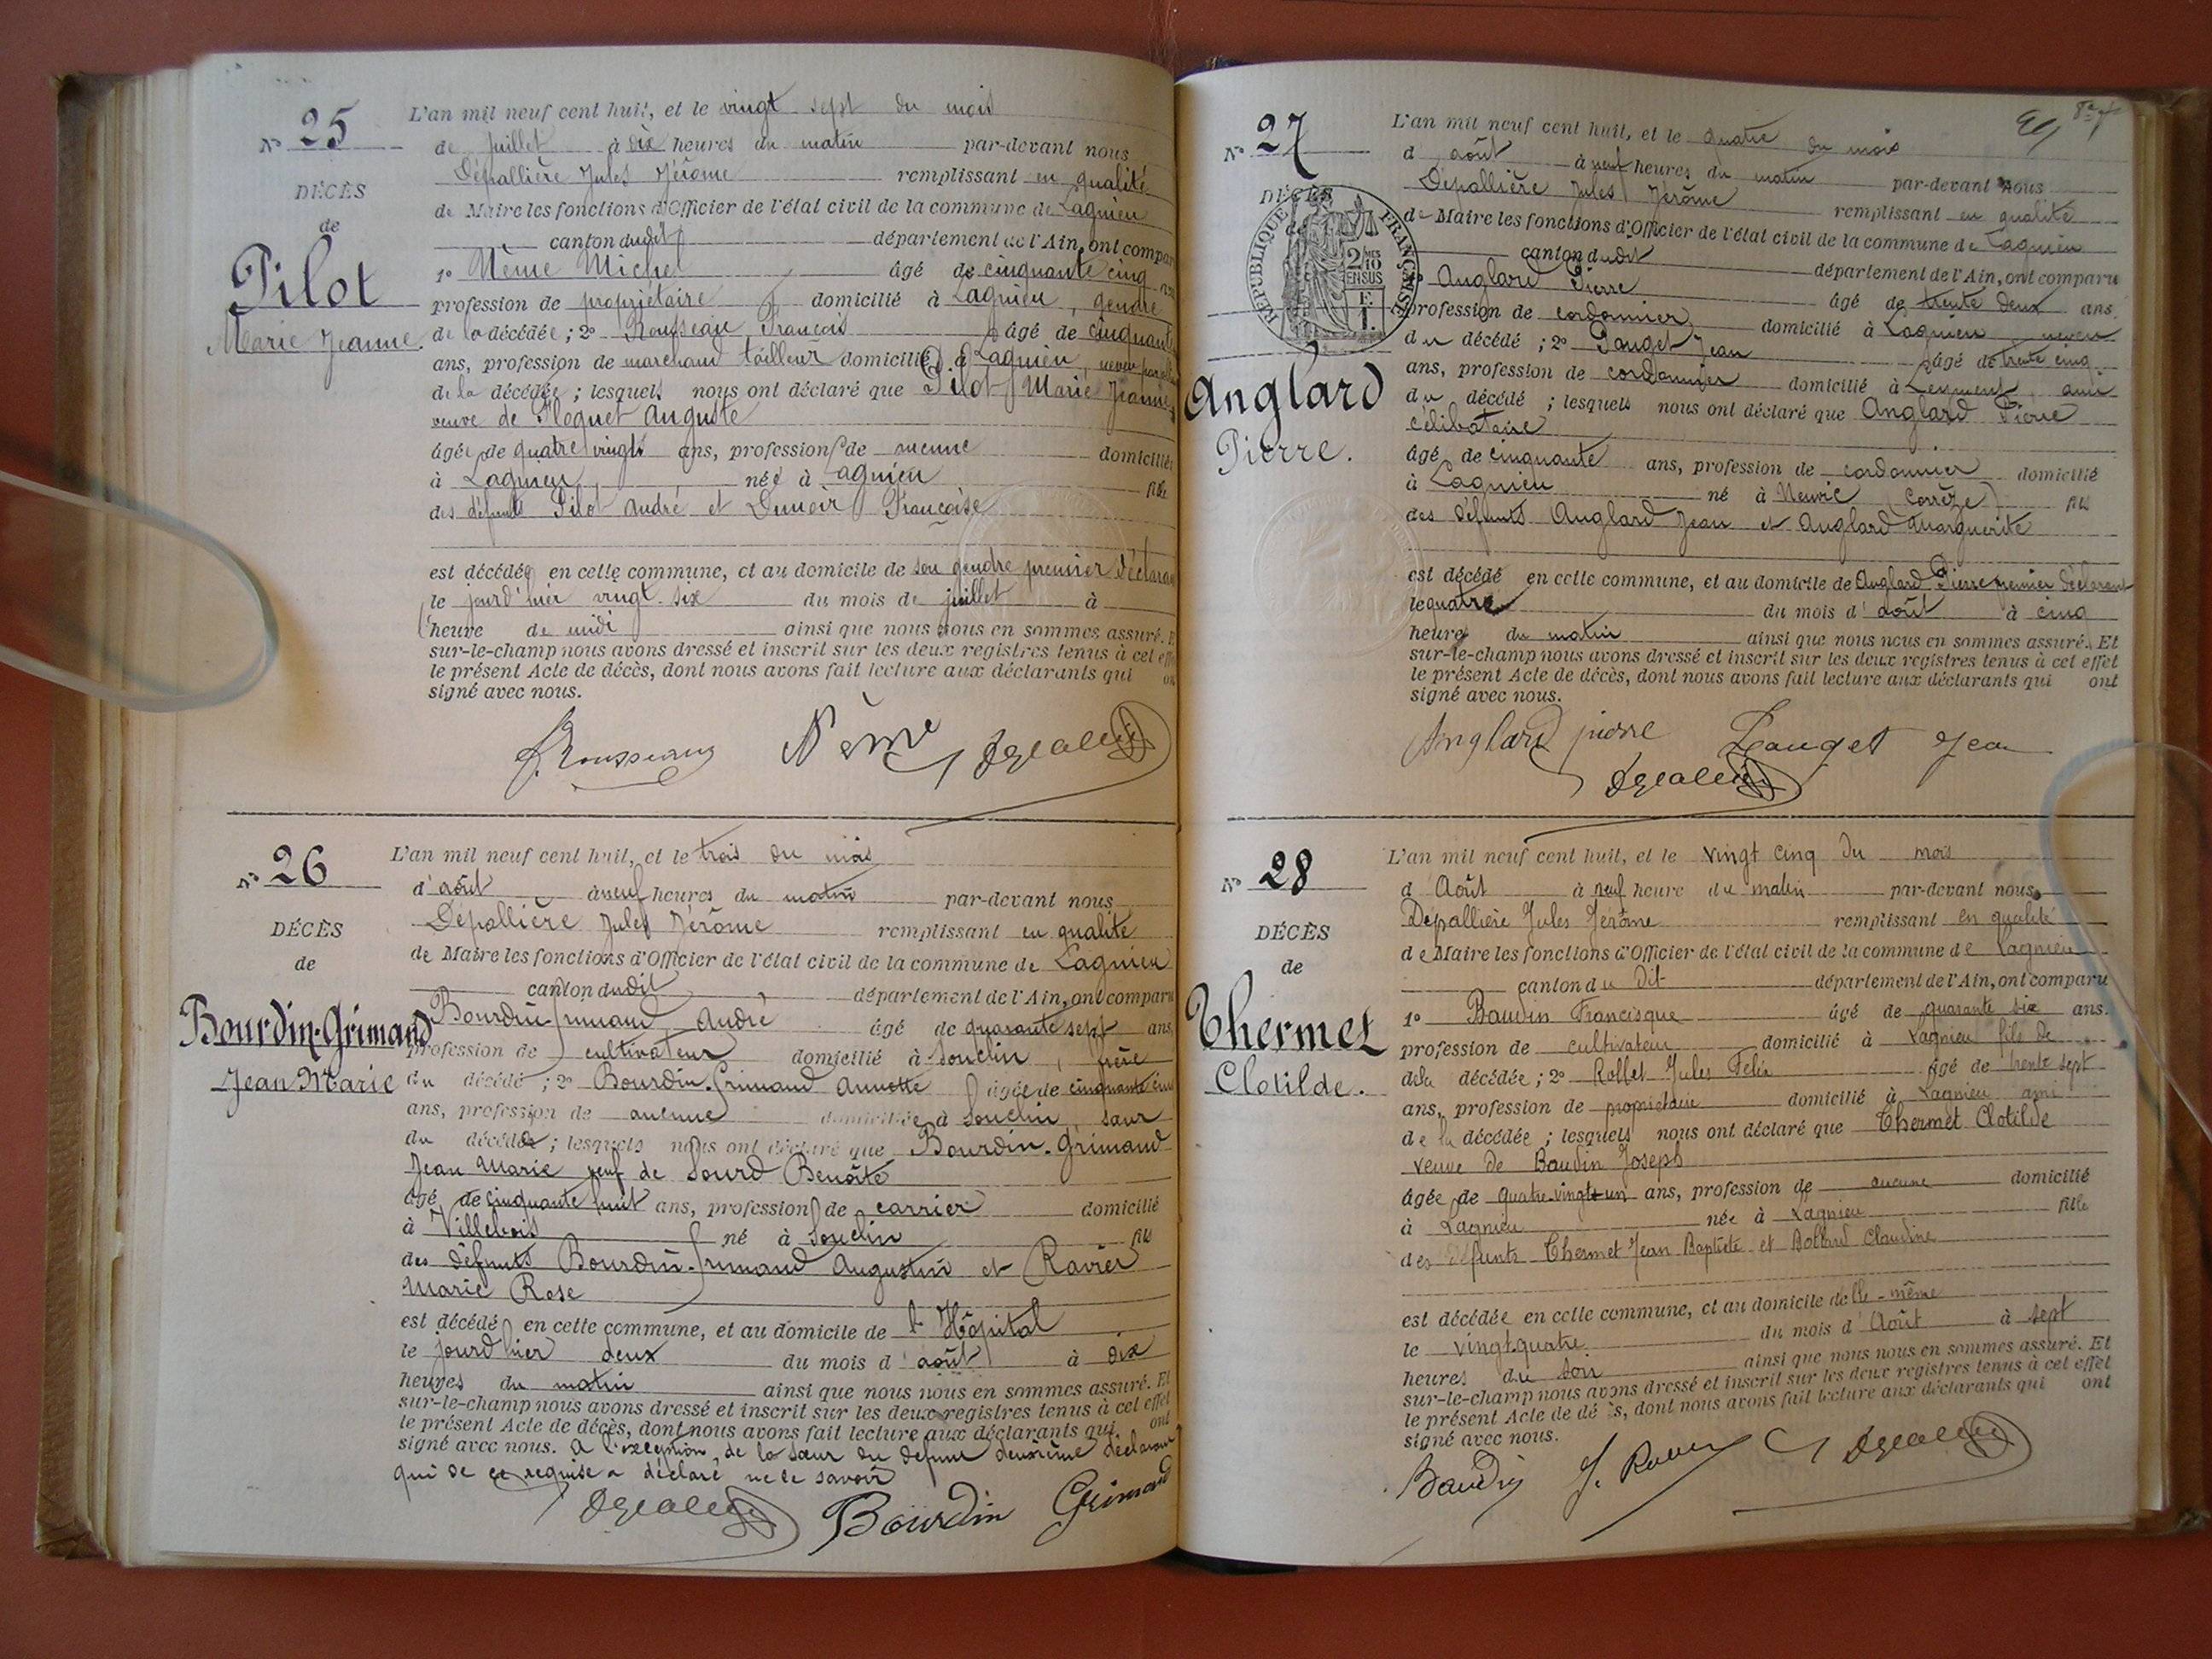 N° 25
DÉCÈS
de
Pilot
Marie Jeanne.
L'an mil neuf cent huit, et le vingt sept du mois
de juillet à dix heures du matin par-devant nous
Dépallière Jules Jérôme remplissant en qualité
de Maire les fonctions d'Officier de l'état civil de la commune de Lagnieu
canton dudit département de l'Ain, ont compar
1° Nême Michel âgé de cinquante cinq ans
profession de propriétaire domicilié à Lagnieu, gendre
de la décédée ; 2° Rousseau François âgé de cinquante
ans, profession de marchand tailleur domicilié à Lagnieu, neveu
de la décédée ; lesquels nous ont déclaré que Pilot Marie Jeanne
veuve de Floquet Auguste
âgée de quatre vingts ans, profession de aucune domiciliée
à Lagnieu née à Lagnieu fille
des défunts Pilot André et Françoise
est décédée en cette commune, et au domicile de son gendre premier déclarant
le jourd'hier vingt-six du mois de juillet à
heure de midi ainsi que nous nous en sommes assuré. E
sur-le-champ nous avons dressé et inscrit sur les deux registres tenus à cet effe
le présent Acte de décès, dont nous avons fait lecture aux déclarants qui on
signé avec nous.
Nême
N° 26
DÉCÈS
de
Bourdin-Grimaud
Jean Marie
L'an mil neuf cent huit, et le trois du mois
d'août à neuf heures du matin par-devant nous
Dépallière Jules Jérôme remplissant en qualité
de Maire les fonctions d'Officier de l'état civil de la commune de Lagnieu
canton dudit département de l'Ain, ont comparu
Bourdin-Grimaud André âgé de quarante sept ans,
profession de cultivateur domicilié à Souclin, frère
du décédé ; 2° Bourdin-Grimaud Annette âgée de cinquante cinq
ans, profession de aucune domiciliée à Souclin, sœur
du décédé ; lesquels nous ont déclaré que Bourdin-Grimaud
Jean Marie veuf de Sourd Benoîte
âgé de cinquante huit ans, profession de carrier domicilié
à Villebois né à Souclin fils
des défunts Bourdin-Grimaud Augustin et Ravier
Marie Rose
est décédé en cette commune, et au domicile de l'Hôpital
le jourd'hier deux du mois d'août à dix
heures du matin ainsi que nous nous en sommes assuré. Et
sur-le-champ nous avons dressé et inscrit sur les deux registres tenus à cet effet
le présent Acte de décès, dont nous avons fait lecture aux déclarants qui ont
signé avec nous. A l'exception de la sœur du défunt deuxième déclarant
qui de ce requise a déclaré ne le savoir
Bourdin Grimaud
N° 27
DÉCÈS
RÉPUBLIQUE FRANÇAISE
2/10 EN SUS
Anglard
Pierre.
L'an mil neuf cent huit, et le quatre du mois
d'août à neuf heures du matin par-devant nous
Dépallière Jules Jérôme remplissant en qualité
de Maire les fonctions d'Officier de l'état civil de la commune de Lagnieu
canton dudit département de l'Ain, ont comparu
Anglard Pierre âgé de trente deux ans.
profession de cordonnier domicilié à Lagnieu neveu
du décédé ; 2° Pauget Jean âgé de trente cinq
ans, profession de cordonnier domicilié à Leyment, ami
du décédé ; lesquels nous ont déclaré que Anglard Pierre
célibataire
âgé de cinquante ans, profession de cordonnier domicilié
à Lagnieu né à Neuvic (Corrèze) fils
des défunts Anglard Jean et Anglard Marguerite
est décédé en cette commune, et au domicile de Anglard Pierre premier déclarant
le quatre du mois d'août à cinq
heures du matin ainsi que nous nous en sommes assuré. Et
sur-le-champ nous avons dressé et inscrit sur les deux registres tenus à cet effet
le présent Acte de décès, dont nous avons fait lecture aux déclarants qui ont
signé avec nous.
Anglard pierre Pauget Jean
N° 28
DÉCÈS
de
Thermet
Clotilde.
L'an mil neuf cent huit, et le vingt cinq du mois
d'Août à neuf heure du matin par-devant nous
Dépallière Jules Jérôme remplissant en qualité
de Maire les fonctions d'Officier de l'état civil de la commune de Lagnieu
canton du dit département de l'Ain, ont comparu
1° Baudin Francisque âgé de quarante six ans.
profession de cultivateur domicilié à Lagnieu fils de
dela décédée ; 2° Rollet Jules Félix âgé de trente sept
ans, profession de propriétaire domicilié à Lagnieu ami
de la décédée ; lesquels nous ont déclaré que Thermet Clotilde
veuve de Baudin Joseph
âgée de quatre-vingt-un ans, profession de aucune domicilié
à Lagnieu née à Lagnieu fille
des défunts Thermet Jean Baptiste et Bollard Claudine
est décédée en cette commune, et au domicile d'elle-même
le vingt-quatre du mois d'Août à sept
heures du soir ainsi que nous nous en sommes assuré. Et
sur-le-champ nous avons dressé et inscrit sur les deux registres tenus à cet effet
le présent Acte de décès, dont nous avons fait lecture aux déclarants qui ont
signé avec nous.
Baudin